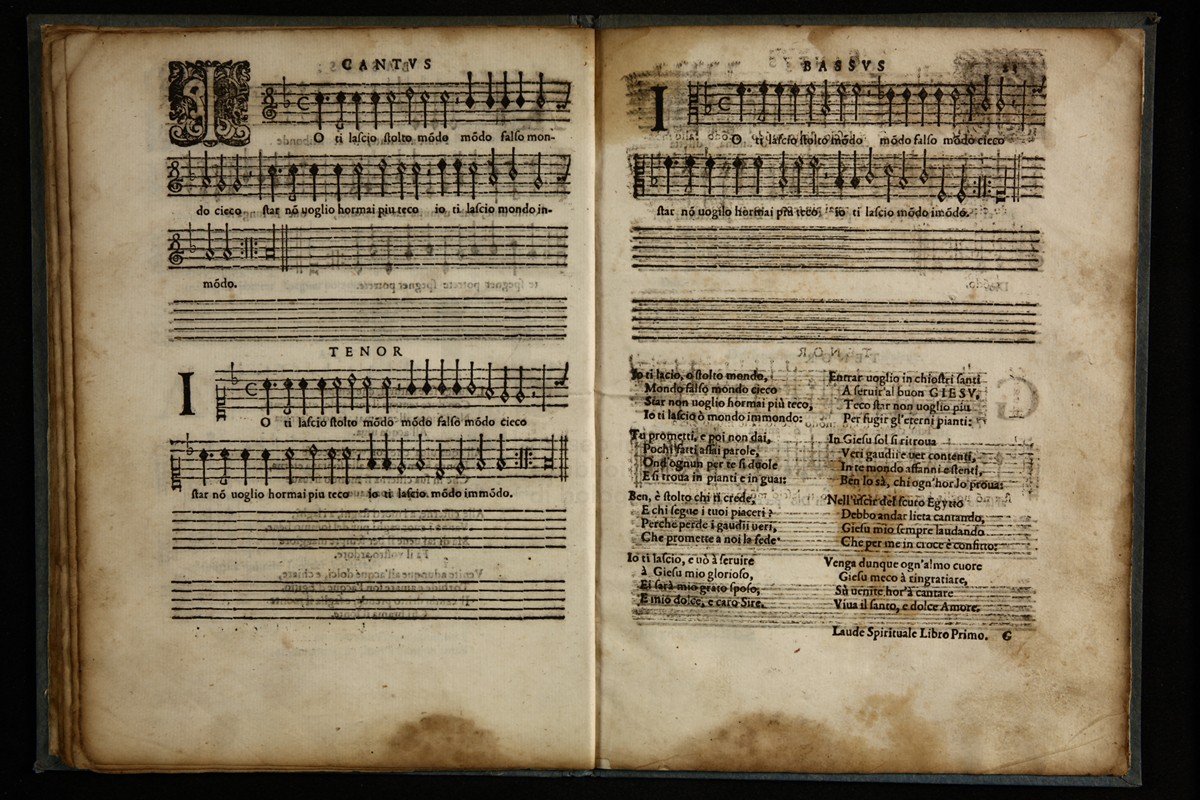 CANTVS
IO ti lascio stolto mõdo mõdo falso mon-
do cieco star nõ uoglio hormai piu teco io ti lascio mondo im-
mõdo.
TENOR
IO ti lascio stolto mõdo mõdo falso mõdo cieco
star nõ uoglio hormai piu teco io ti lascio mõdo immõdo.
BASSVS
IO ti lascio stolto mõdo mõdo falso mõdo cieco
star nõ uoglio hormai piu teco, io ti lascio mõdo imõdo.
Io ti lacio, o stolto mondo,
Mondo falso mondo cieco
Star non uoglio hormai più teco,
Io ti lascio ò mondo immondo:
Tu prometti, e poi non dai,
Pochi fatti assai parole,
Ond'ognun per te si duole
E si troua in pianti e in guai:
Ben, è stolto chi ti crede,
E chi segue i tuoi piaceri?
Perche perde i gaudii ueri,
Che promette a noi la fede
Io ti lascio, e uò à seruire
à Giesu mio glorioso,
Ei sarà mio grato sposo,
E mio dolce, e caro Sire.
Entrar uoglio in chiostri santi
A seruir'al buon GIESV,
Teco star non uoglio piu
Per fugir gl'eterni pianti:
In Giesu sol si ritroua
Veri gaudii e uer contenti,
In te mondo affanni e stenti,
Ben lo sà, chi ogn'hor lo proua:
Nell'uscir del scuro Egytto
Debbo andar lieta cantando,
Giesu mio sempre laudando
Che per me in croce è confitto:
Venga dunque ogn'almo cuore
Giesu meco à ringratiare,
Sù uenite hor'à cantare
Viua il santo, e dolce Amore.
Laude Spirituale Libro Primo. G